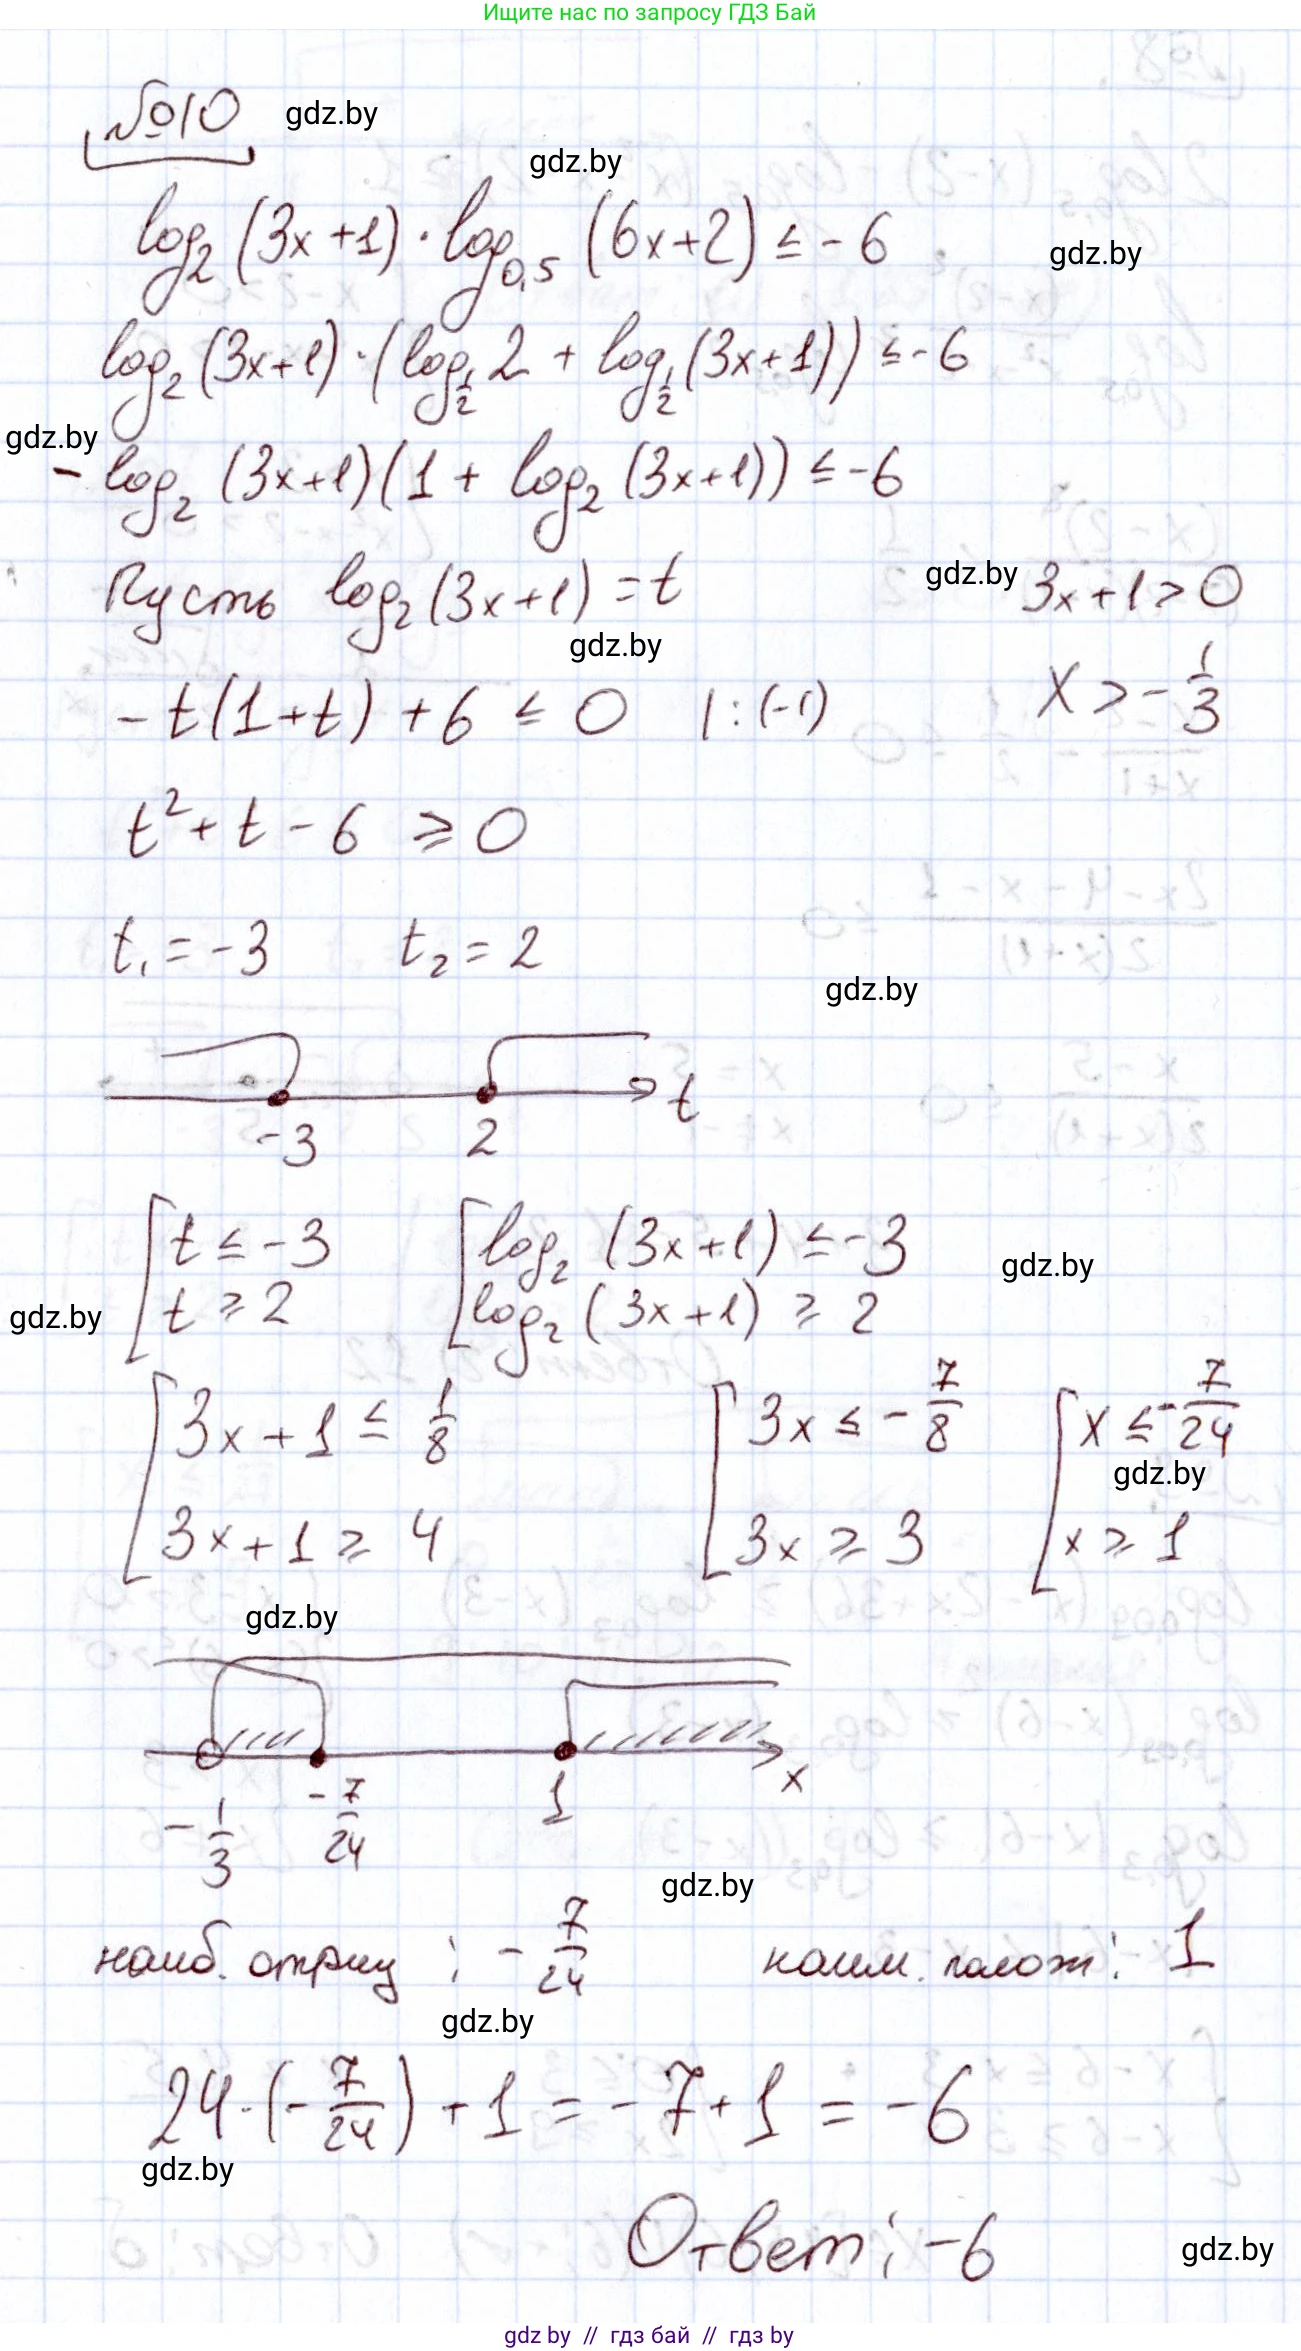 Ищите нас по запросу ГДЗ Бай
№10 gdz.by
gdz.by
log₂(3x+1)·log₀,₅(6x+2) ≤ -6 gdz.by
log₂(3x+1)·(log_{1/2} 2 + log_{1/2}(3x+1)) ≤ -6
gdz.by
-log₂(3x+1)(1 + log₂(3x+1)) ≤ -6
Пусть log₂(3x+1) = t gdz.by 3x+1>0
gdz.by
-t(1+t)+6 ≤ 0 |:(-1) x > -1/3
t²+t-6 ≥ 0
t₁ = -3 t₂ = 2
gdz.by
t
-3 2
[t ≤ -3 [log₂(3x+1) ≤ -3
gdz.by
t ≥ 2 log₂(3x+1) ≥ 2
gdz.by
[3x+1 ≤ 1/8 [3x ≤ -7/8 [x ≤ -7/24
gdz.by
3x+1 ≥ 4 3x ≥ 3 x ≥ 1
gdz.by
x
-1/3 -7/24 1
gdz.by
наиб. отриц: -7/24 наим. полож: 1
gdz.by
24·(-7/24)+1 = -7+1 = -6
gdz.by
Ответ: -6
gdz.by
gdz by // гдз бай // гдз by